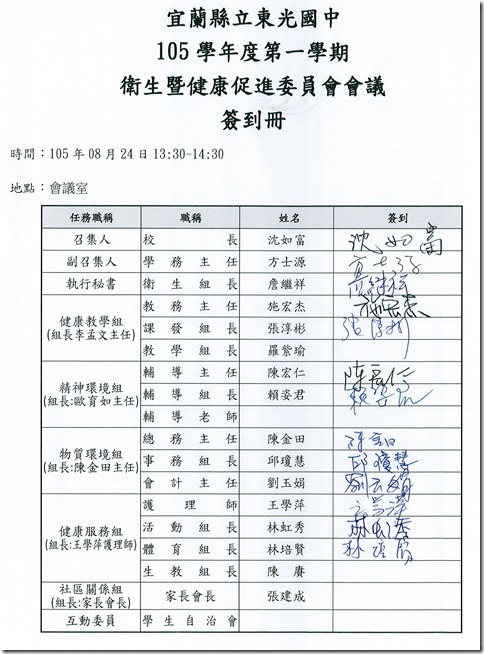 宜蘭縣立東光國中
105 學年度第一學期
衛生暨健康促進委員會會議
簽到冊
時間：105 年 08 月 24 日 13:30-14:30
地點：會議室
任務職稱 職稱 姓名 簽到
召集人 校長 沈如富 沈如富
副召集人 學務主任 方士源 方士源
執行秘書 衛生組長 詹繼祥 詹繼祥
健康教學組
(組長李孟文主任)
教務主任 施宏杰 施宏杰
課發組長 張淳彬 張淳彬
教學組長 羅紫瑜
精神環境組
(組長:歐育如主任)
輔導主任 陳宏仁 陳宏仁
輔導組長 賴姿君 賴姿君
輔導老師
物質環境組
(組長:陳金田主任)
總務主任 陳金田
事務組長 邱瓊慧 邱瓊慧
會計主任 劉玉娟 劉玉娟
健康服務組
(組長:王學萍護理師)
護理師 王學萍
活動組長 林虹秀 林虹秀
體育組長 林培賢 林培賢
生教組長 陳賡
社區關係組
(組長:家長會長)
家長會長 張建成
互動委員 學生自治會